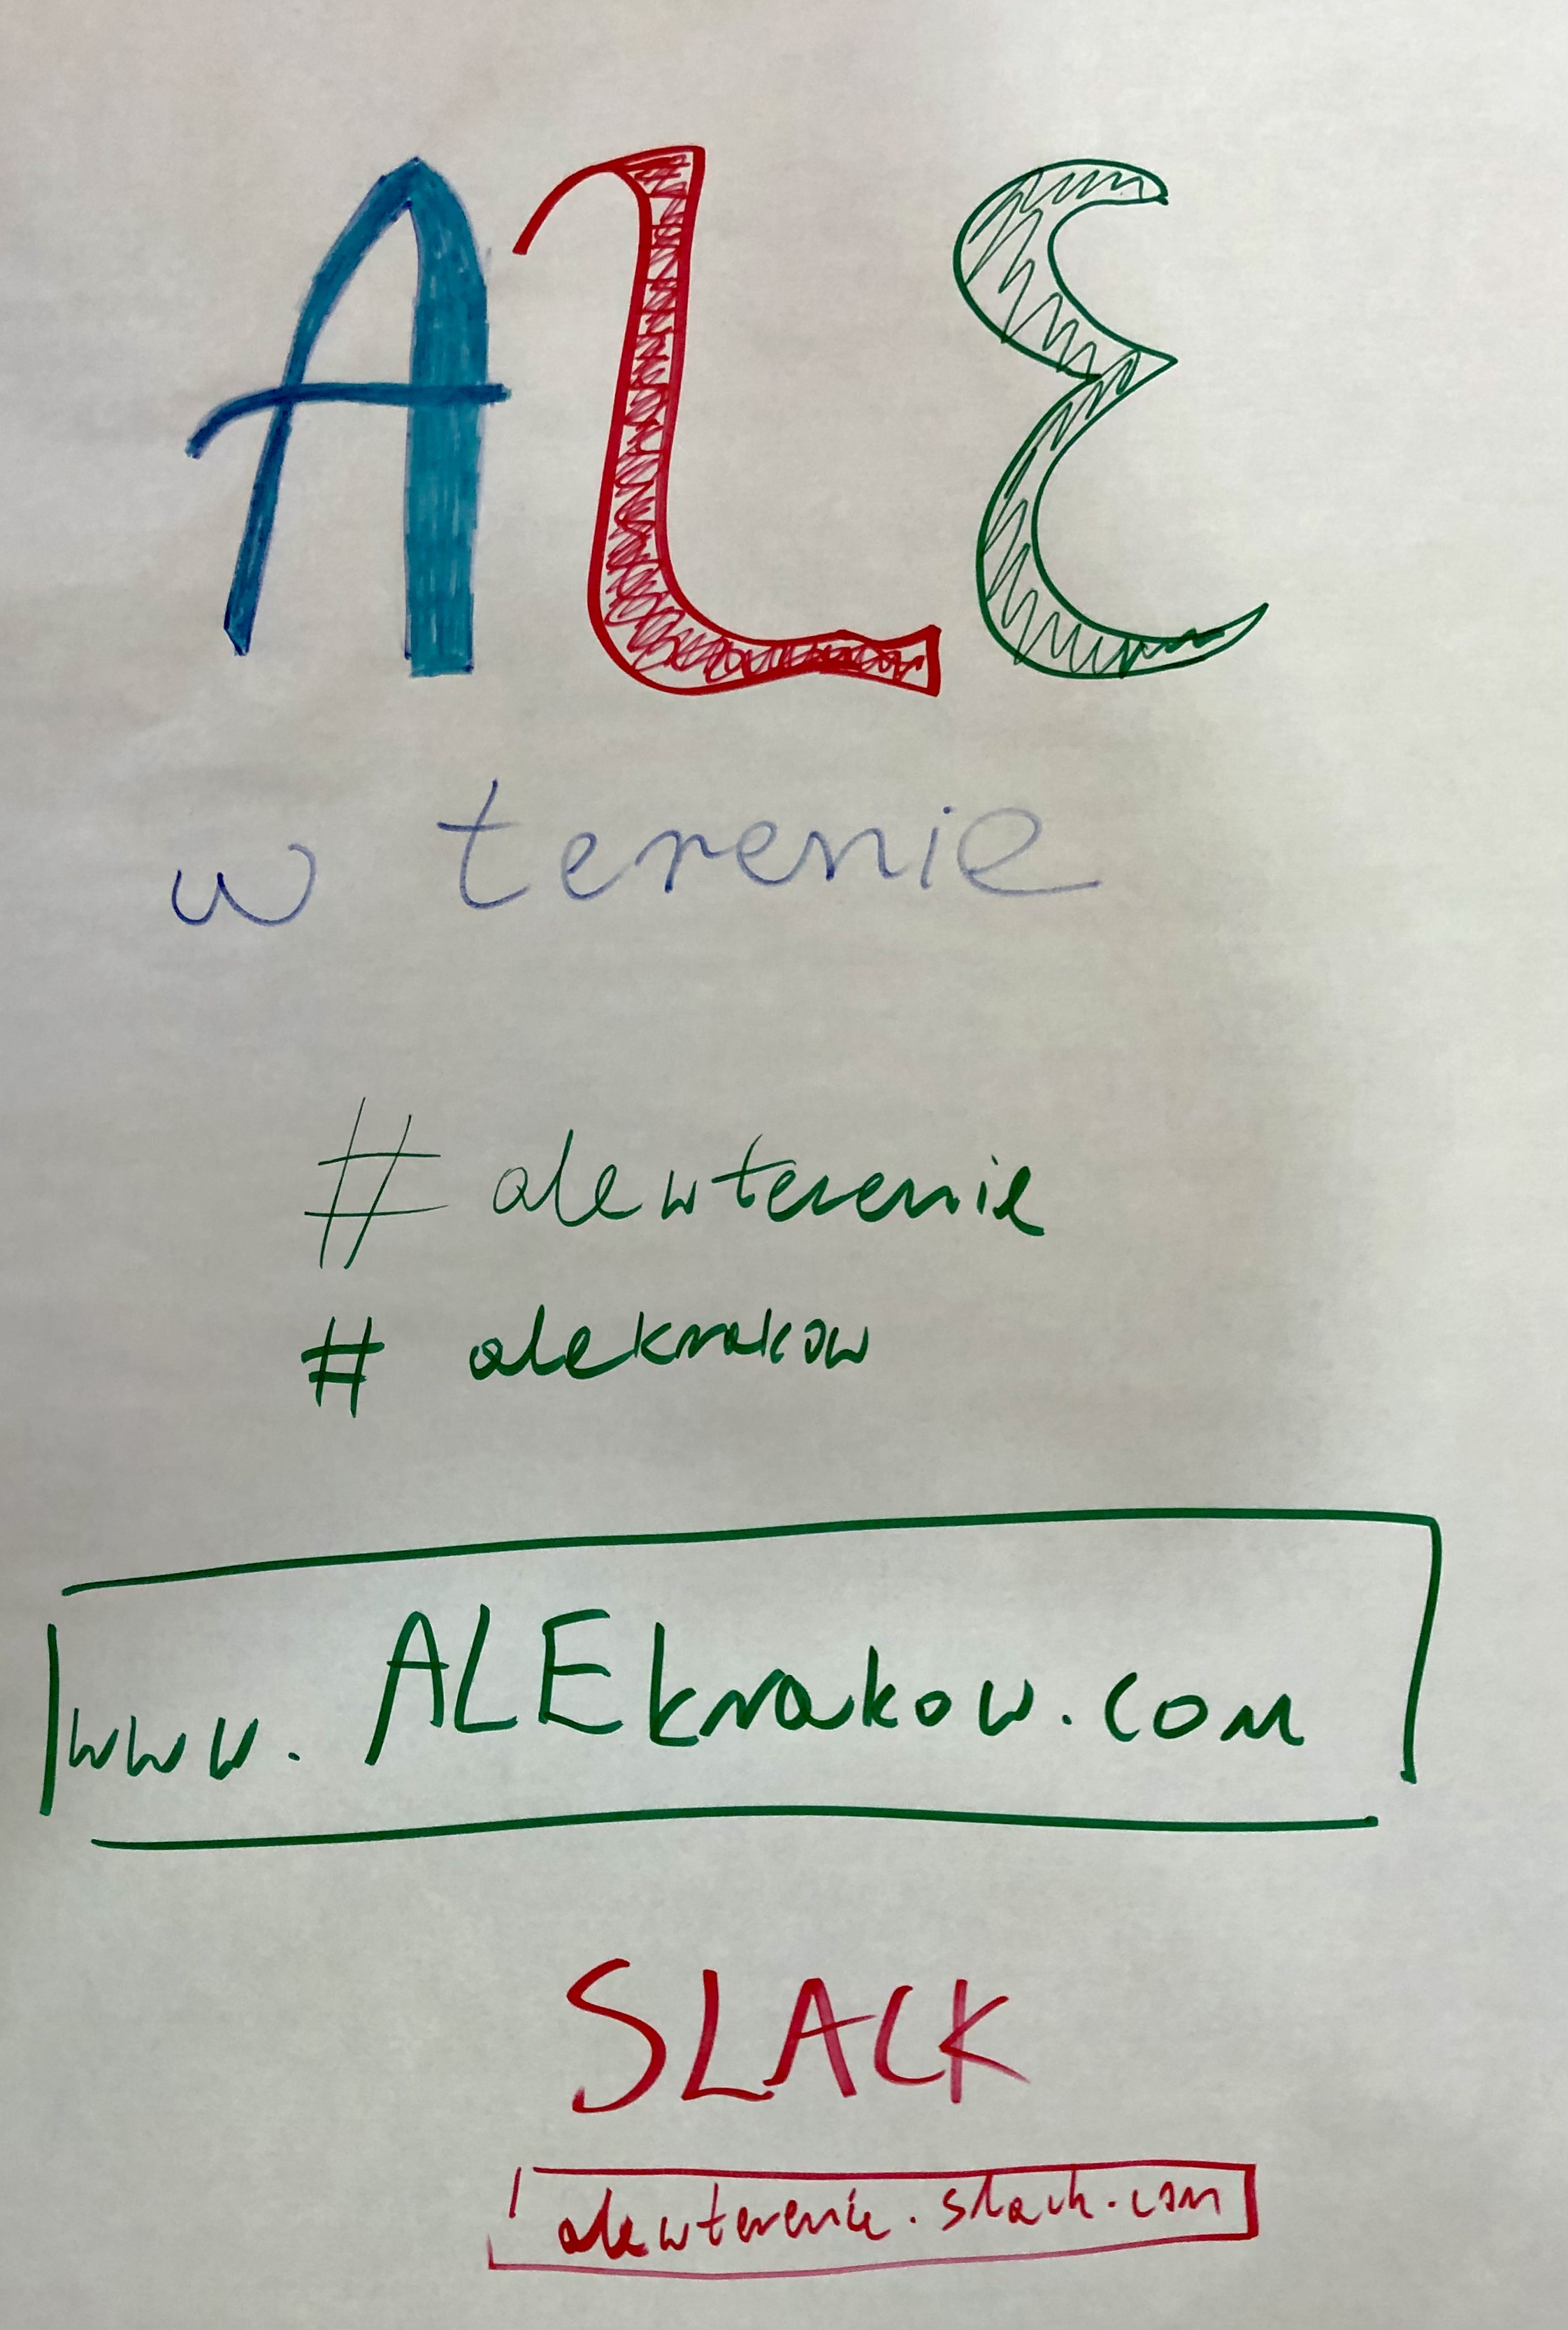 ALE
w terenie
# alewterenie
# alekrakow
www. ALEkrakow.com
SLACK
alewterenie.slack.com